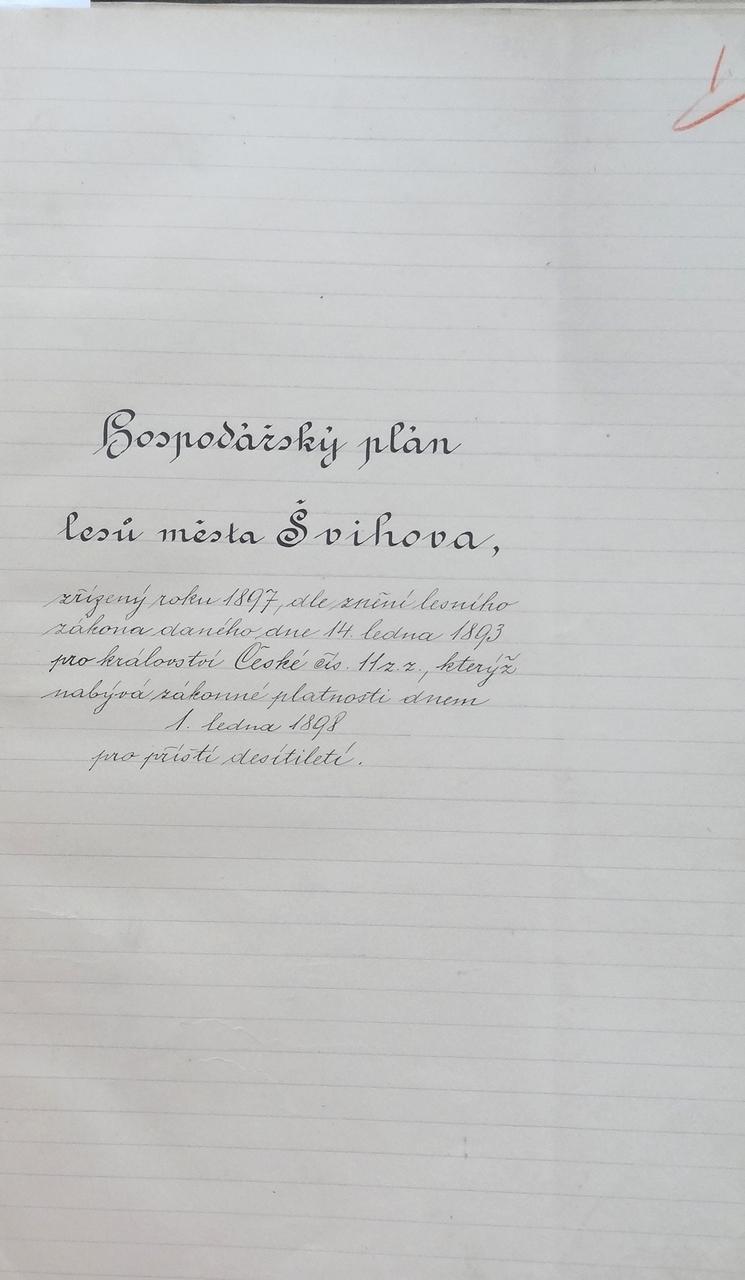 Hospodářský plán
lesů města Švihova,
zřízený roku 1897, dle znění lesního
zákona daného dne 14. ledna 1893
pro království České čís. 11 z. z., kterýž
nabývá zákonné platnosti dnem
1. ledna 1898
pro příští desítiletí.